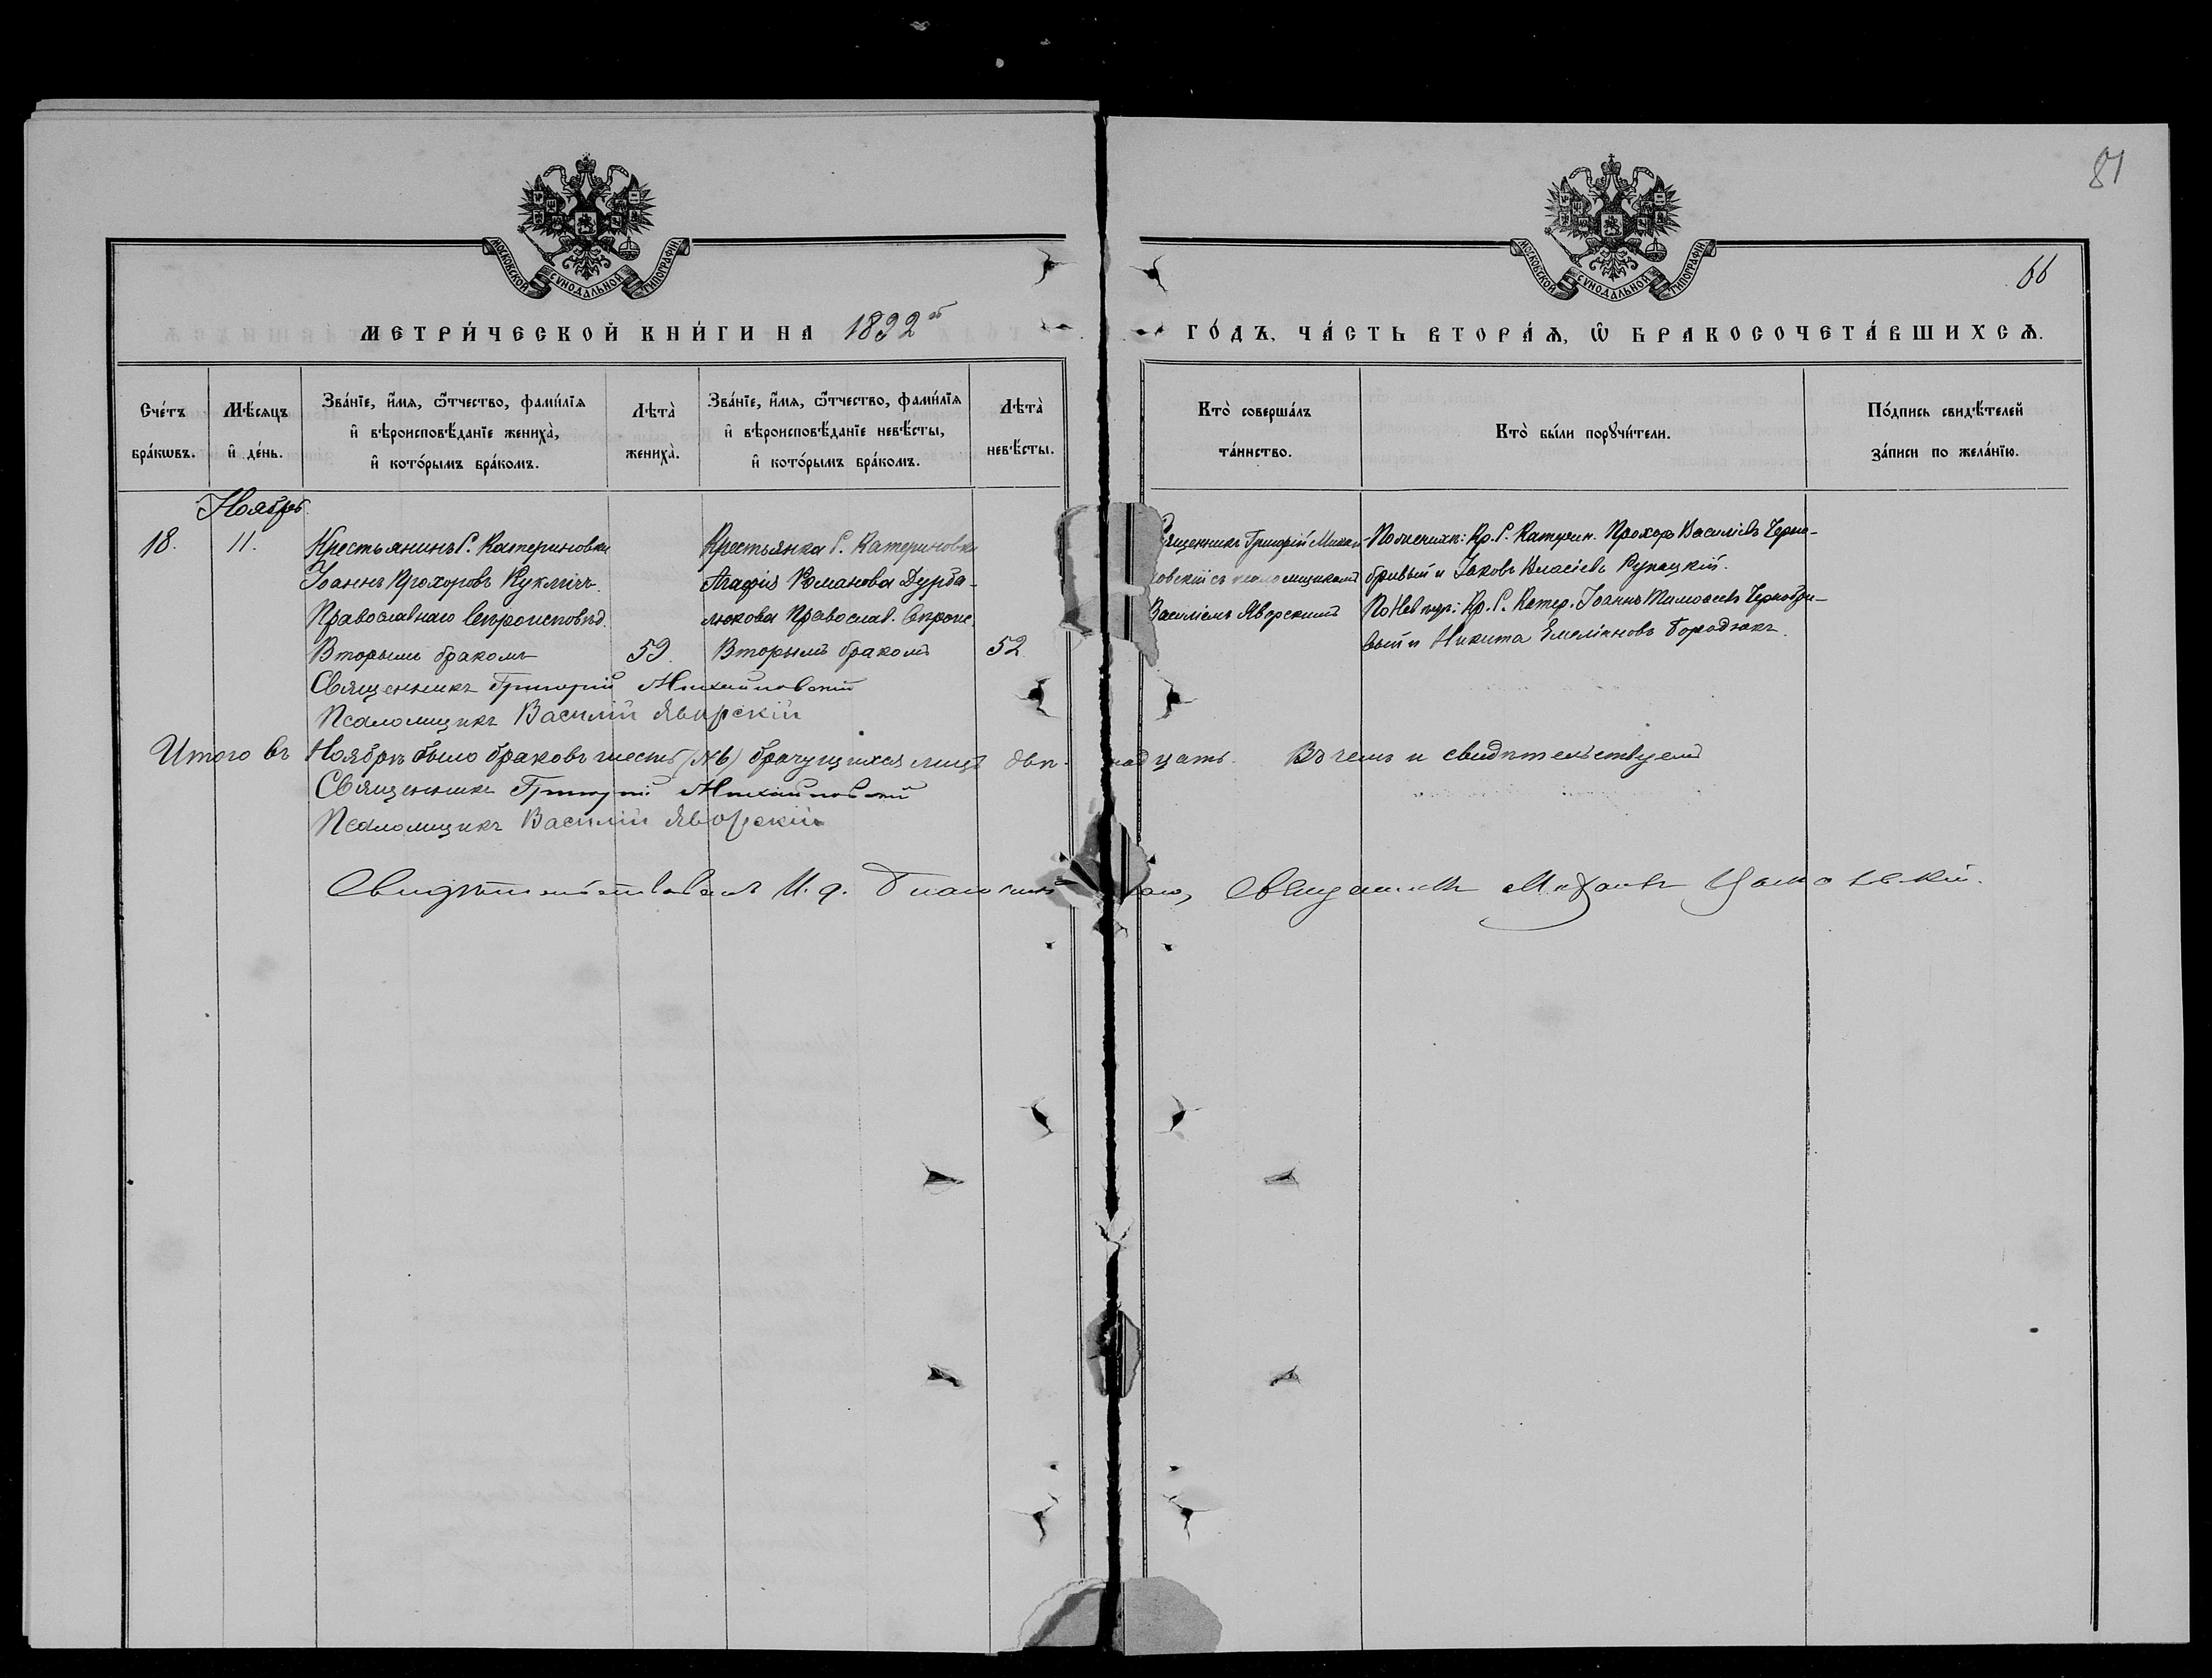 81
66
МОСКОВСКОЙ СѴНОДАЛЬНОЙ ТИПОГРАФІИ
МОСКОВСКОЙ СѴНОДАЛЬНОЙ ТИПОГРАФІИ
МЕТРИ́ЧЕСКОЙ КНИ́ГИ НА 1892й
ГО́ДЪ, ЧА́СТЬ ВТОРА́Ѧ, Ѽ БРАКОСОЧЕТА́ВШИХСѦ.
Сче́тъ
бра́кѡвъ.
Мѣ́сѧцъ
и҆ де́нь.
Зва́нїе, и҆́мѧ, ѻ҆́тчество, фами́лїѧ
и҆ вѣроисповѣ́данїе жениха̀,
и҆ кото́рымъ бра́комъ.
Лѣта̀
жениха̀.
Зва́нїе, и҆́мѧ, ѻ҆́тчество, фами́лїѧ
и҆ вѣроисповѣ́данїе невѣ́сты,
и҆ кото́рымъ бра́комъ.
Лѣта̀
невѣ́сты.
Кто̀ соверша́лъ
та́инство.
Кто̀ бы́ли порꙋчи́тели.
По́дпись свидѣ́телей
за́писи по жела́нїю.
Ноябрь.
18.
11.
Крестьянинъ С. Катериновки
Іоаннъ Прохоровъ Кукличъ
Православнаго Вѣроисповѣд.
Вторымъ бракомъ
59.
Крестьянка С. Катериновки
Агафія Романова Дурба-
люкова Православ. Вѣроис.
Вторымъ бракомъ
52
Священникъ Григорій Михай-
ловскій съ псаломщикомъ
Василіемъ Яворскимъ
По женихѣ: Кр. С. Катерин. Прохоръ Василіевъ Черно-
бривый и Іаковъ Власіевъ Рупацкій.
По Невѣстѣ: Кр. С. Катер. Іоаннъ Тимоѳеевъ Чернобри-
вый и Никита Емеліановъ Бородюкъ.
Священникъ Григорій Михайловскій
Псаломщикъ Василій Яворскій
Итого въ Ноябрѣ было браковъ шесть (№6) брачущихся лицъ двѣ-надцать. Въ чемъ и свидѣтельствуемъ
Священникъ Григорій Михайловскій
Псаломщикъ Василій Яворскій
Свидѣтельствовалъ И. д. Священникъ Михаилъ